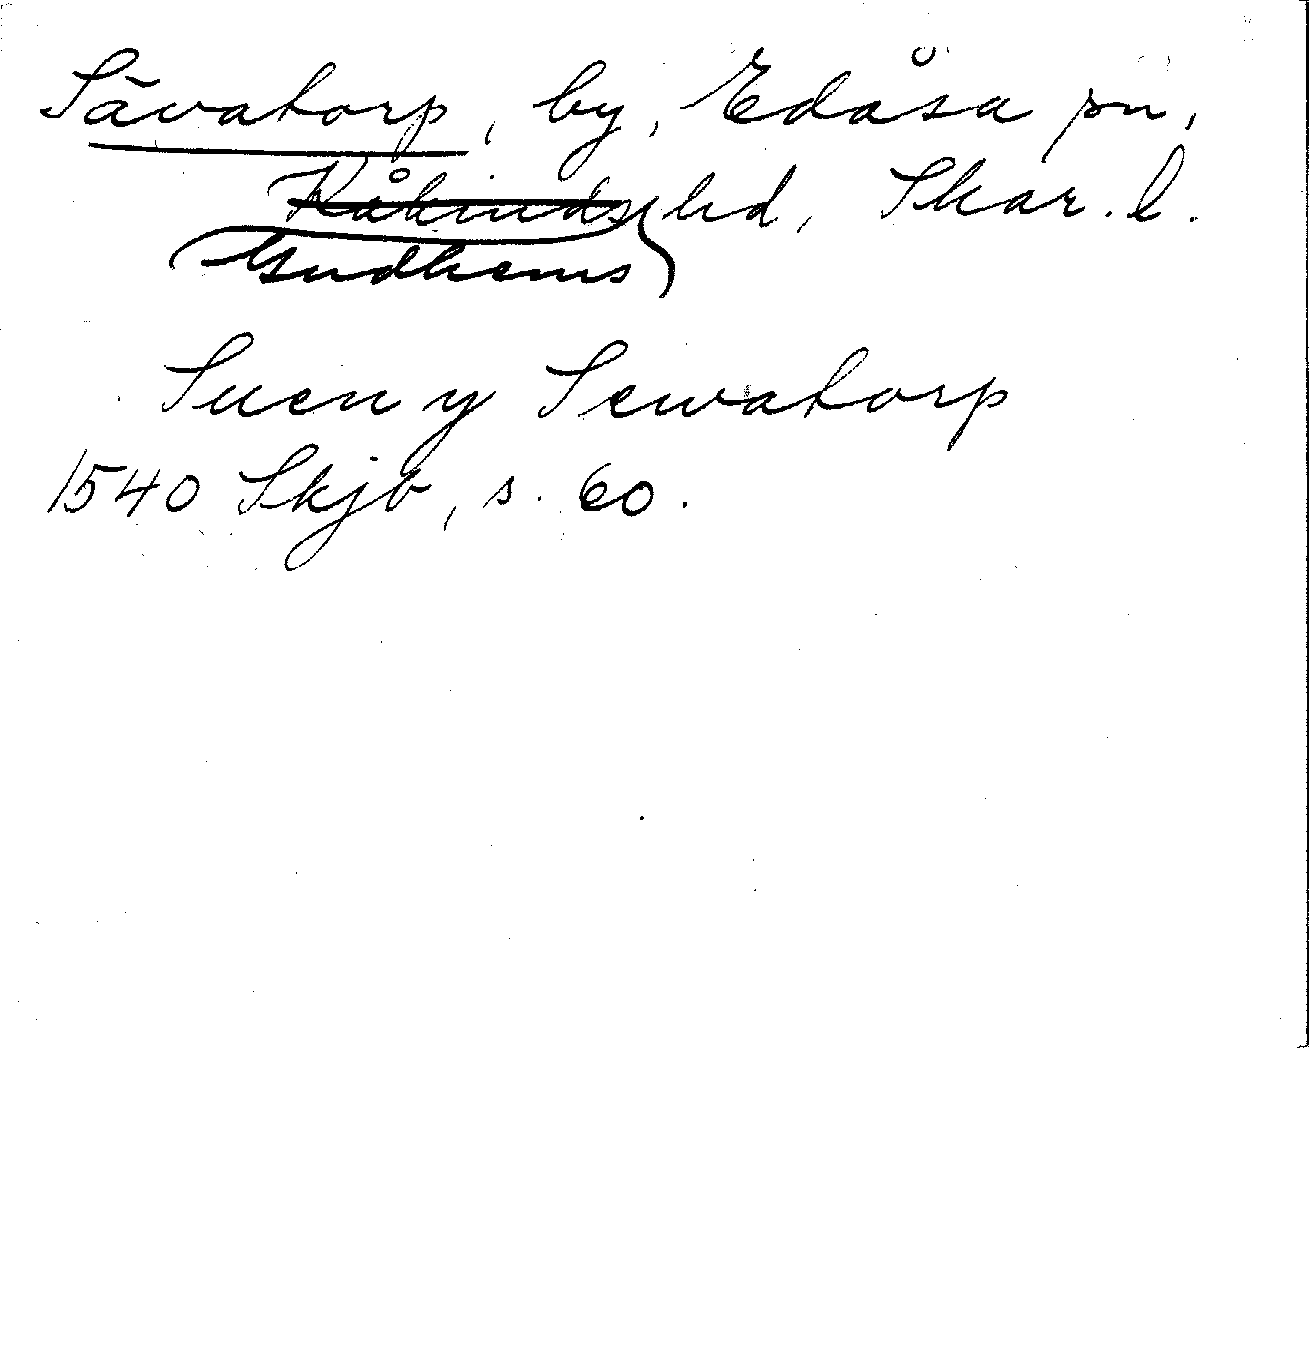 Sävatorp, by, Edåsa sn,
Kåkinds hd, Skar. l.
Gudhems
Suen y Sewatorp
1540 Skjb, s. 60.